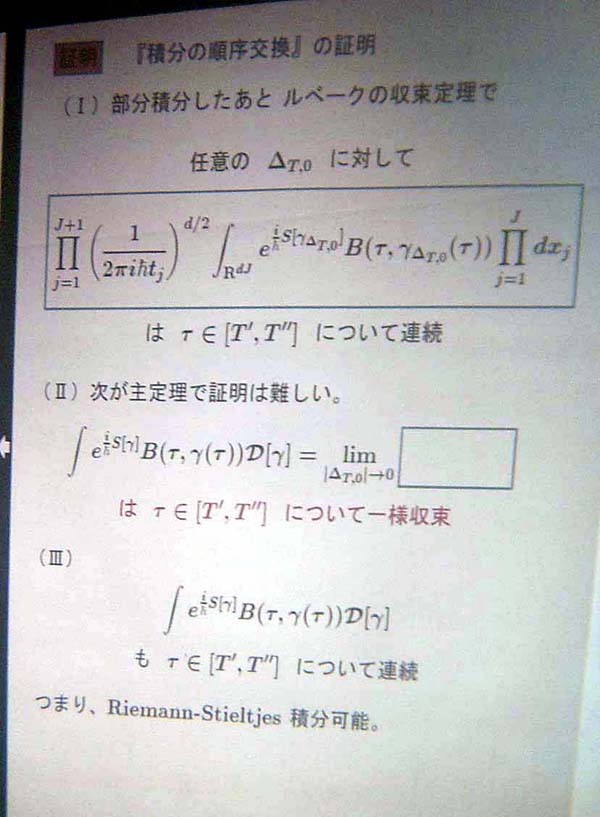 証明 『積分の順序交換』の証明
(Ⅰ) 部分積分したあと ルベークの収束定理で
任意の Δ_{T,0} に対して
∏_{j=1}^{J+1} (1/(2πiħt_j))^{d/2} ∫_{R^{dJ}} e^{(i/ħ)S[γ_{Δ_{T,0}}]} B(τ, γ_{Δ_{T,0}}(τ)) ∏_{j=1}^{J} dx_j
は τ ∈ [T′, T″] について連続
(Ⅱ) 次が主定理で証明は難しい。
∫ e^{(i/ħ)S[γ]} B(τ, γ(τ)) 𝒟[γ] = lim_{|Δ_{T,0}|→0}
は τ ∈ [T′, T″] について一様収束
(Ⅲ)
∫ e^{(i/ħ)S[γ]} B(τ, γ(τ)) 𝒟[γ]
も τ ∈ [T′, T″] について連続
つまり、Riemann-Stieltjes 積分可能。